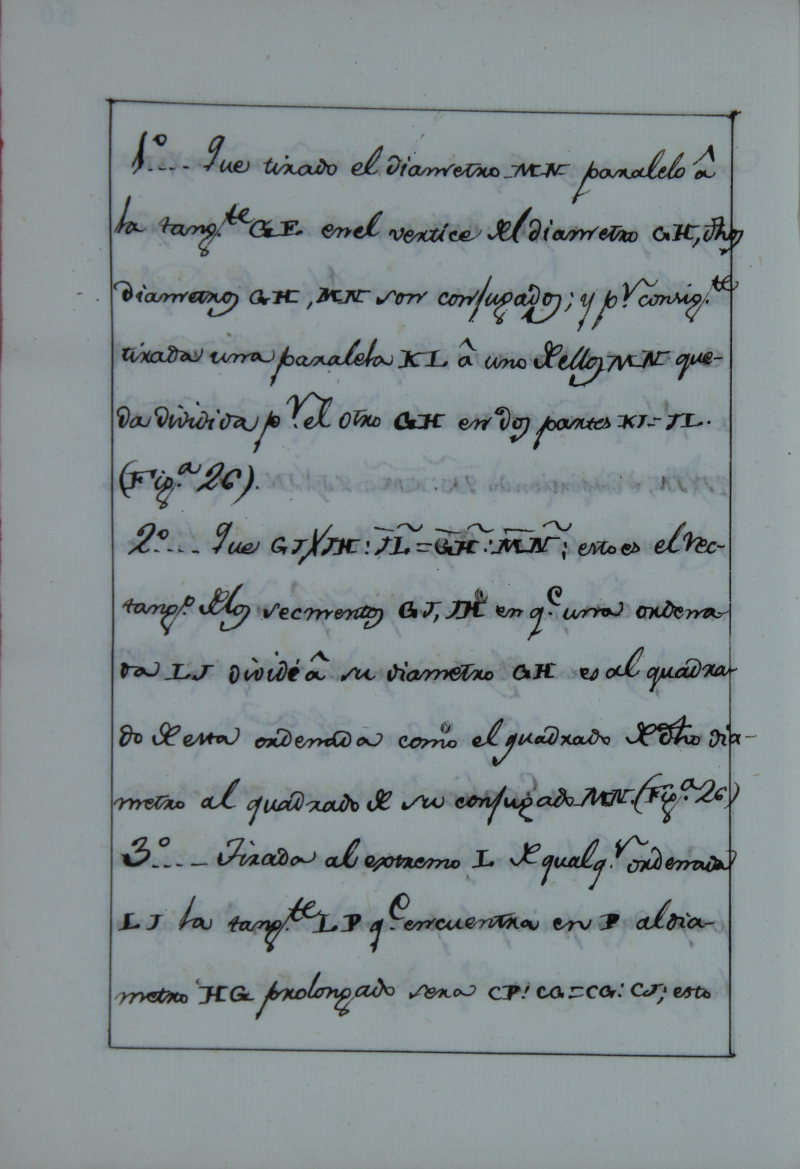 1º.... Que tirado el diametro MN paralelo â
la tang.te GE en el vertice del diametro GH, dhos
diametros GH, MN son conjugados; y pr consig.te
tirada una paralela KL â uno de ellos MN que-
da dividida pr el otro GH en dos partes KI=IL.
(Fig.a 26).
2º.... Que GJ×JH : JL = GH : MN; esto es el rec-
tang.º de los secmentos GJ, JH en q.e una ordena-
da LJ divide â su diametro GH es al quadra-
do de esta ordenada como el quadrado de dho dia-
metro al quadrado de su conjugado MN. (Fig.a 26)
3º.... Tirada al extremo L de qualq.r ordenada
LJ la tang.te LP q.e encuentra en P al dia-
metro HG prolongado sera CP : CG = CG : CJ; esto